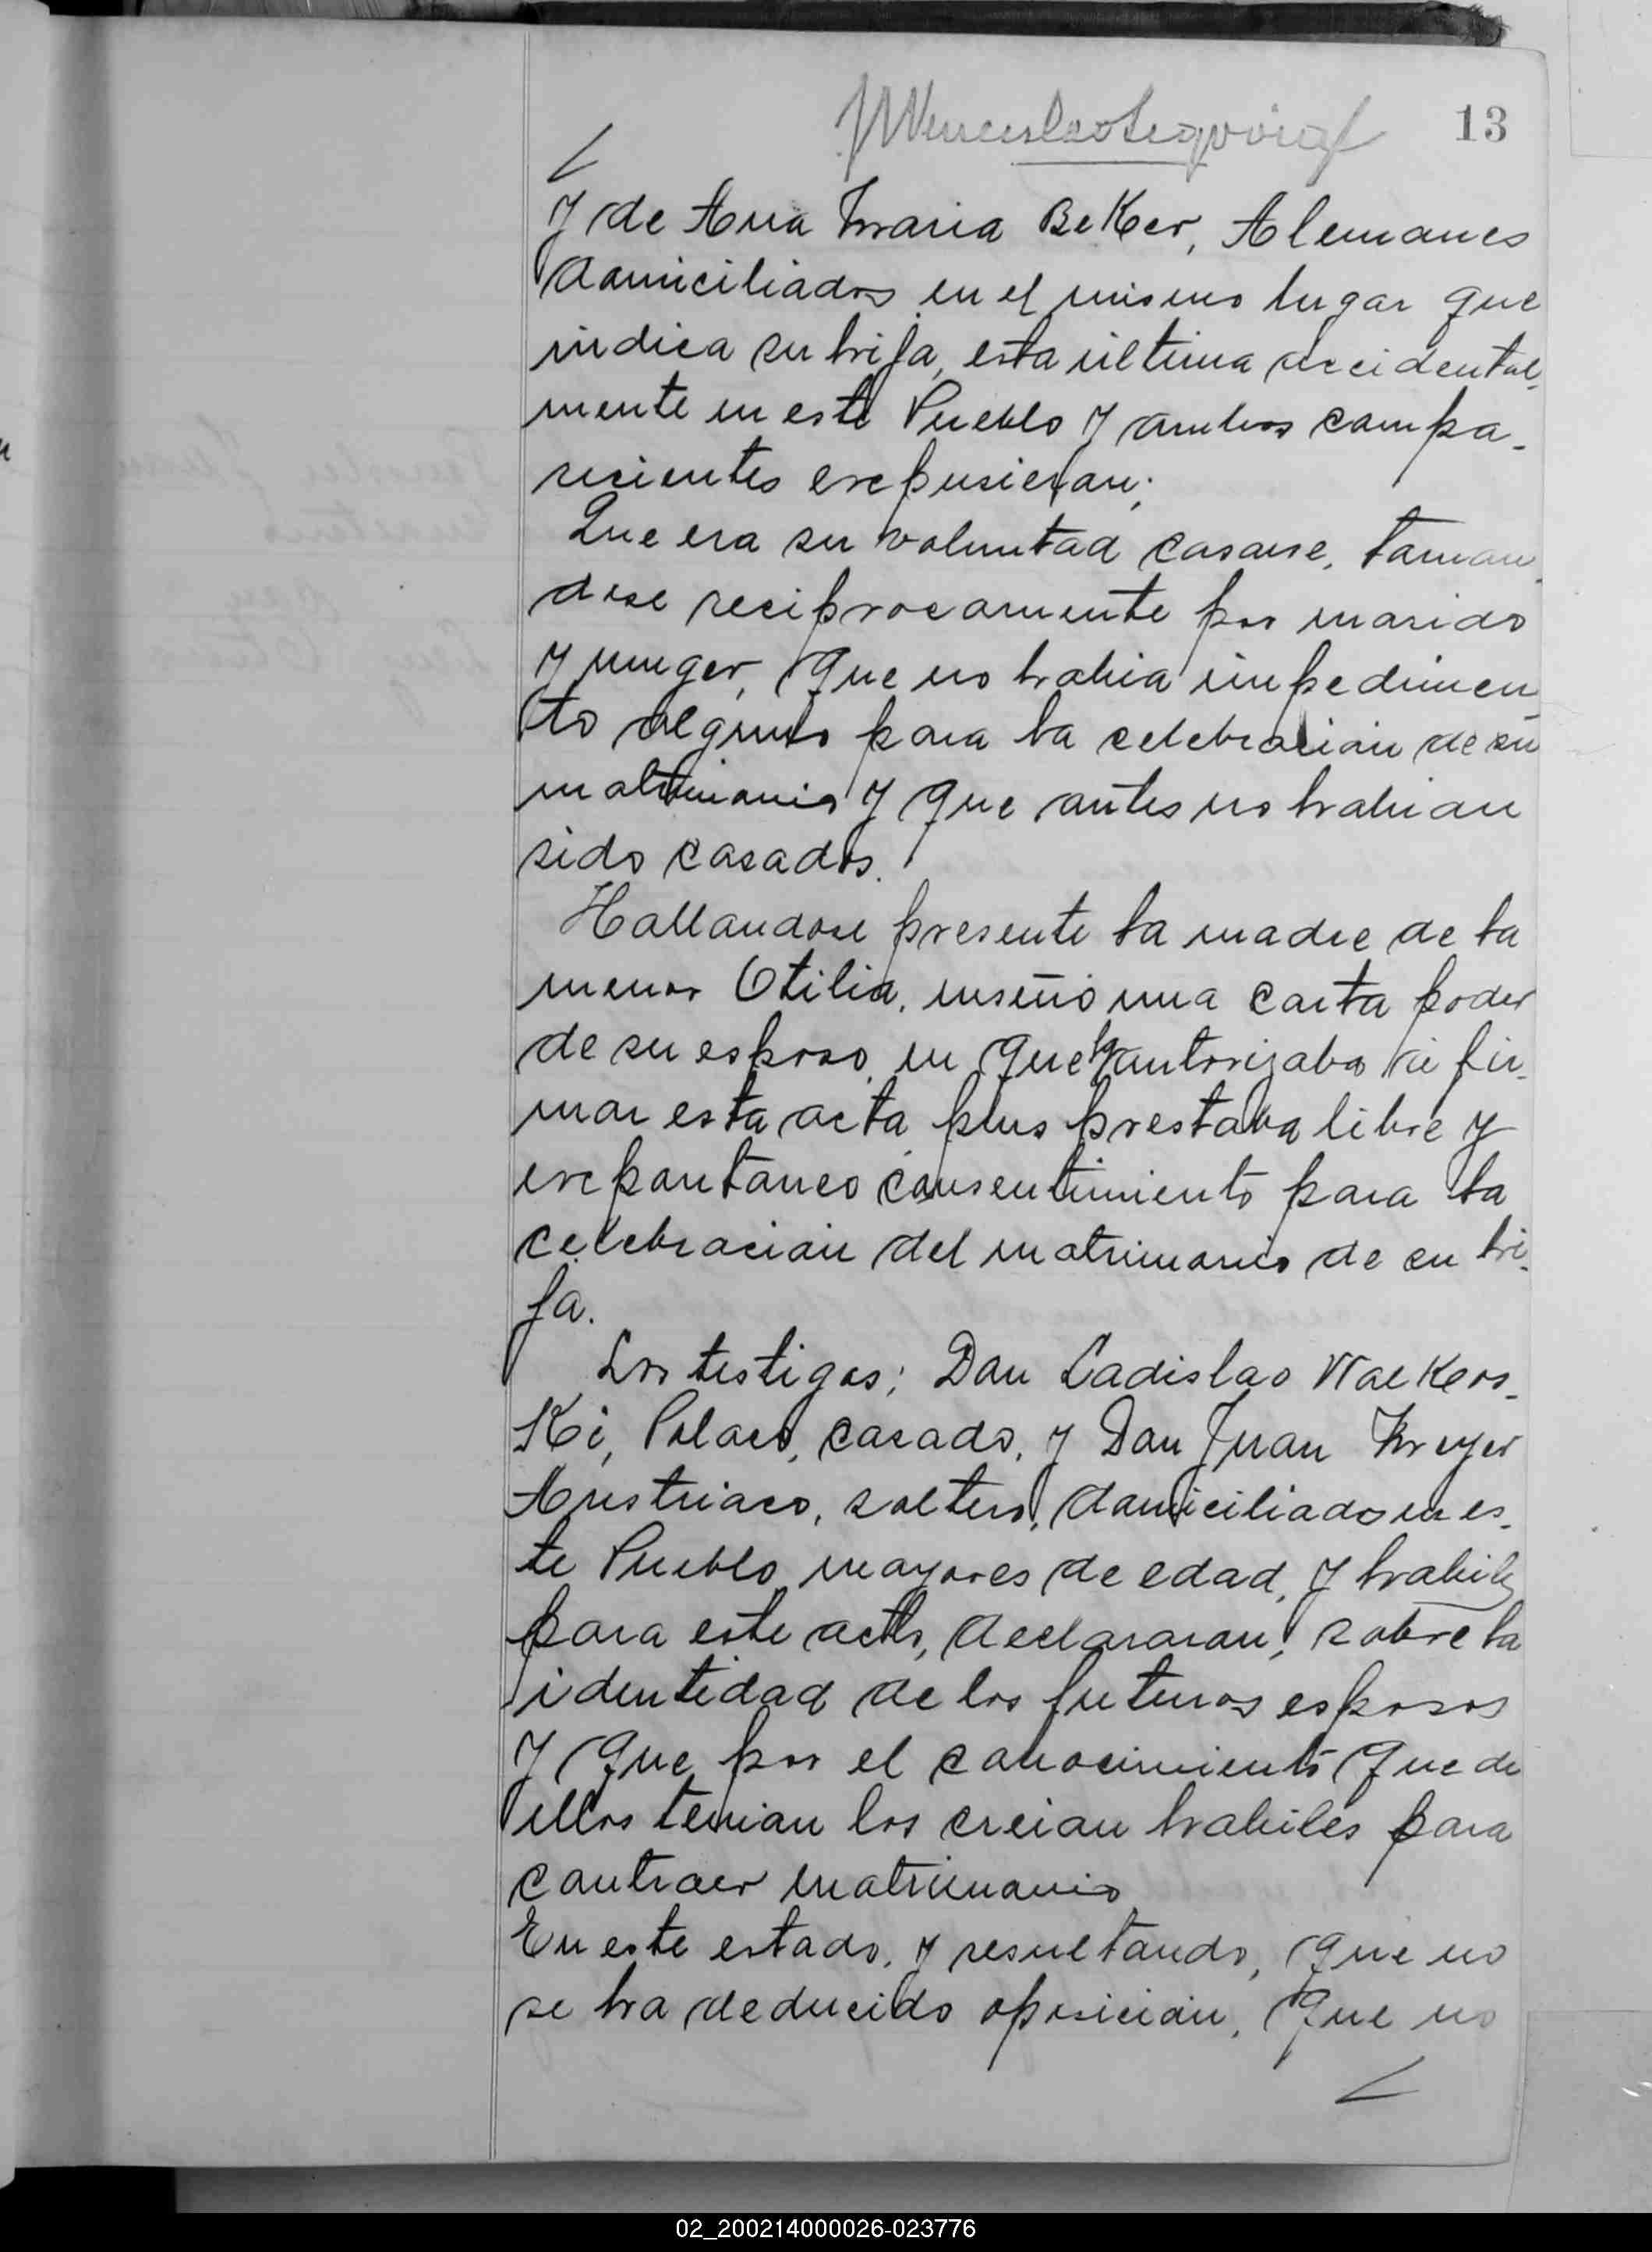 13
y de Ana Maria BeKer, Alemanes
domiciliados en el mismo lugar que
indica su hija, esta última accidental-
mente en este Pueblo y ambos compa-
recientes expusieron;
Que era su voluntad casarse, toman-
dose reciprocamente por marido
y muger, que no habia impedimen-
to alguno para la celebración de su
matrimonio y que antes no habian
sido casados.
Hallandose presente la madre de la
menor Otilia, enseño una carta poder
de su esposo en que la autorizaba á fir-
mar esta acta plus prestaba libre y
expontaneo consentimiento para la
celebración del matrimonio de su hi-
ja.
Los testigos; Don Ladislao WalKows-
Ki, Polaco, casado, y Don Juan
Austriaco, soltero, domiciliado en es-
te Pueblo mayores de edad, y habiles
para este acto, declararon, sobre la
identidad de los futuros esposos
y que por el conocimiento que de
ellos tenian los creian habiles para
contraer matrimonio
En este estado, y resultando, que no
se ha deducido oposición, que no
02_200214000026-023776